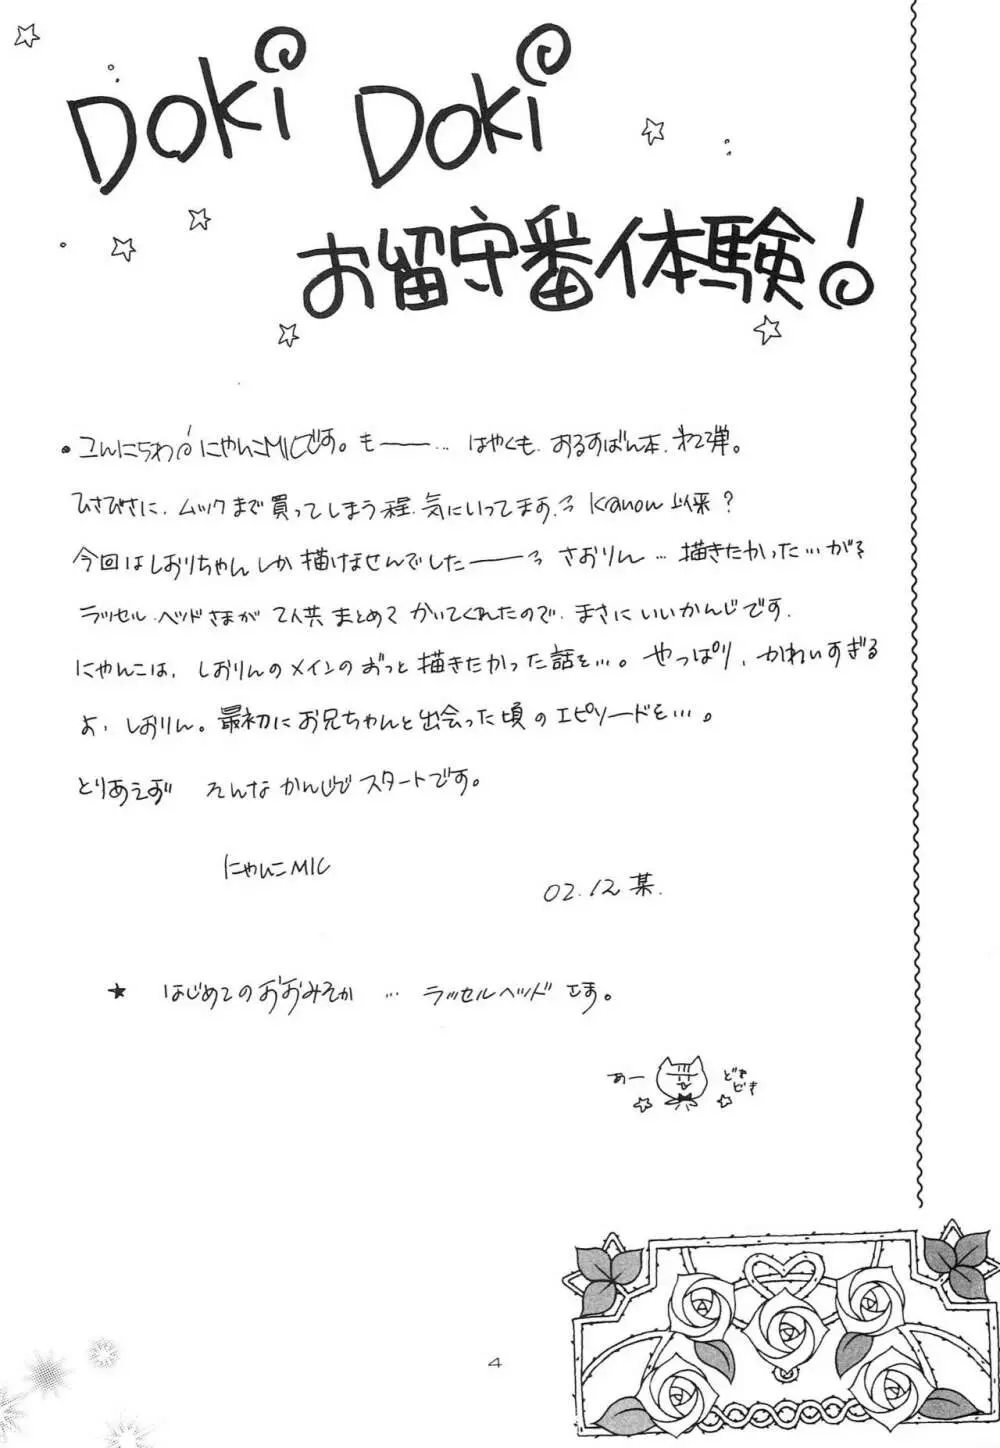 DOKi DOKi
お留守番体験!
• こんにちわ! にゃんこMICです。も――… はやくも、おるすばん本、第2弾。
ひさびさに、ムックまで買ってしまう程、気にいってます。 Kanon以来?
今回はしおりちゃんしか描けませんでした――っ さおりん…描きたかった…が
ラッセル・ヘッドさまが 2人共 まとめて かいてくれたので、まさに いいかんじです。
にゃんこは、しおりんのメインの ずっと描きたかった話を…。やっぱり、かわいすぎる
よ、しおりん。最初にお兄ちゃんと出会った頃のエピソードを…。
とりあえず そんな かんじで スタートです。
にゃんこMIC
02.12 某.
★ はじめてのおおみそか … ラッセルヘッド さま。
あー どき
どき
4